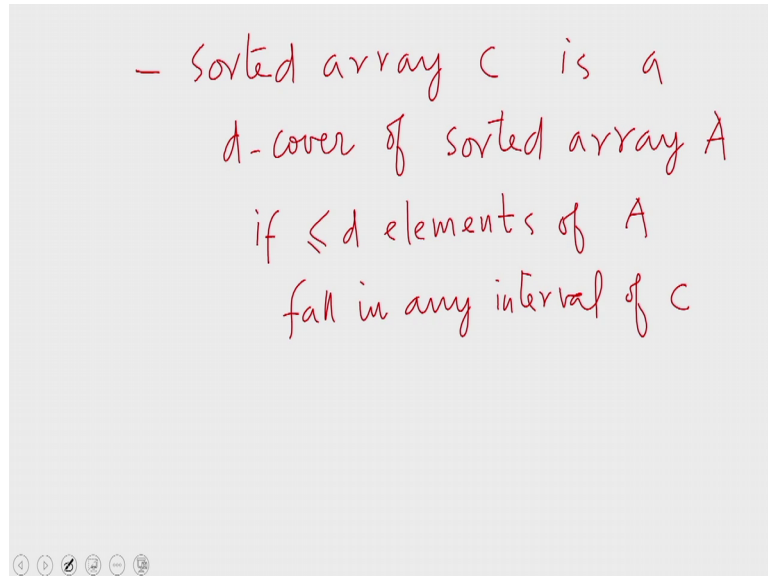 - Sorted array C is a
d-cover of sorted array A
if ⩽ d elements of A
fall in any interval of C